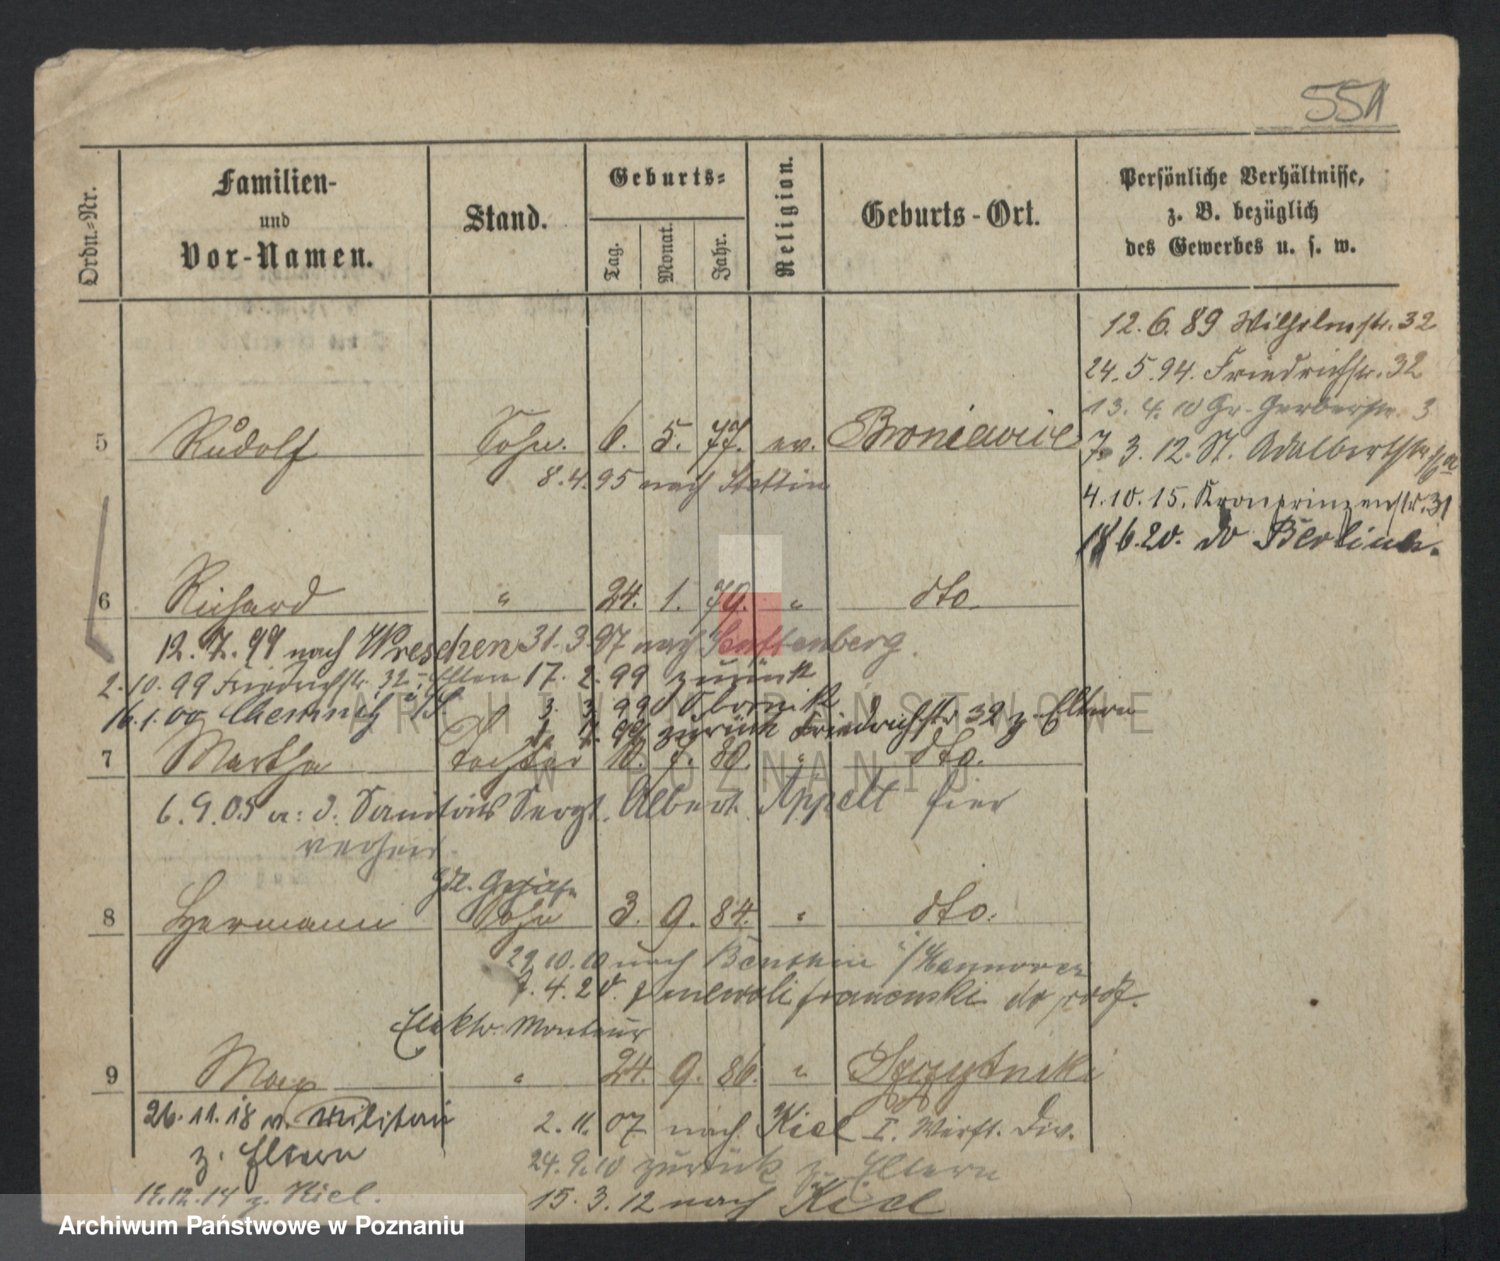 551
Ordn.-Nr.
Familien-
und
Vor-Namen.
Stand.
Geburts-
Tag.
Monat.
Jahr.
Religion.
Geburts-Ort.
Persönliche Verhältnisse,
z. B. bezüglich
des Gewerbes u. s. w.
12. 6. 89 Wilhelmstr. 32
24. 5. 94. Friedrichstr. 32
13. 4. 10 Gr. Gerberstr. 3
5 Rudolf Sohn. 6. 5. 77. ev. Broniewice
7. 3. 12. St. Adalbertstr.
8. 4. 95 nach Stettin
4. 10. 15. Kronprinzenstr. 31
18 6. 20. do Berlina.
6 Richard " 24. 1. 79. " dto.
12. 7. 99 nach Wreschen 31. 3. 97 nach
2. 10. 99 Friedrichstr. 32 z. Eltern 17. 2. 99 zurück
16. 1. 00 Chemnitz i/S. 3. 3. 99 Obornik
zurück Friedrichstr 32 z. Eltern
7 Martha Tochter 10. 7. 80. " dto.
6. 9. 05 a: d. Sanitäts Sergt. Albert Appelt hier
verheir.
8 Hermann Sohn 3. 9. 84. " dto.
29. 10. 10 nach Benthein i/Hannover
7. 4. 20. do
Elektr. Monteur
9 Max " 24. 9. 86. " Szczytniki
26. 11. 18 v. Militär 2. 11. 07 nach Kiel I. Werft. Div.
z. Eltern 24. 9. 10 zurück z. Eltern
12. 14 z. Kiel. 15. 3. 12 nach Kiel
ARCHIWUM PAŃSTWOWE
W POZNANIU
Archiwum Państwowe w Poznaniu